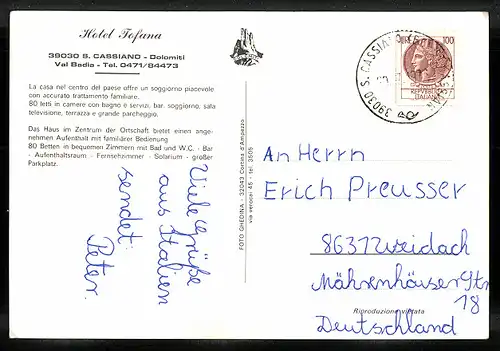 Hotel Tofana
39030 S. CASSIANO - Dolomiti
Val Badia - Tel. 0471/84473
La casa nel centro del paese offre un soggiorno piacevole
con accurato trattamento familiare.
80 letti in camere con bagno e servizi, bar, soggiorno, sala
televisione, terrazza e grande parcheggio.
Das Haus im Zentrum der Ortschaft bietet einen ange-
nehmen Aufenthalt mit familiärer Bedienung
80 Betten in bequemen Zimmern mit Bad und W.C. - Bar
- Aufenthaltsraum - Fernsehzimmer - Solarium - großer
Parkplatz.
Viele Grüße
aus Italien
sendet:
Peter.
FOTO GHEDINA - 32043 Cortina d'Ampezzo
via verocai 45 - tel. 3505
100
REPVBBLICA
ITALIANA
39030 S. CASSIANO
An Herrn
Erich Preusser
86372 weidach
Mährenhäuser Str
18
Riproduzione vietata
Deutschland